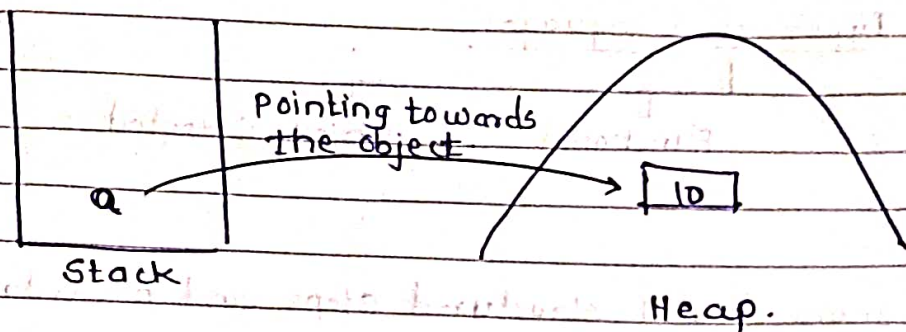 Pointing towards
the object
a
10
Stack
Heap.